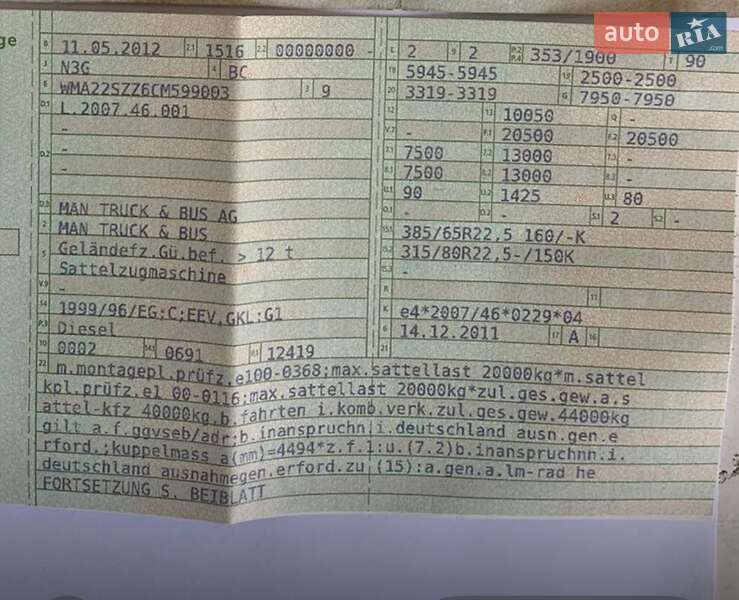 auto RIA .com
ge
B 11.05.2012 2.1 1516 2.2 00000000 - L 2 9 2 P.2 P.4 353/1900 T 90
J N3G 4 BC 18 5945-5945 19 2500-2500
E WMA22SZZ6CM599003 3 9 20 3319-3319 G 7950-7950
D.1 L.2007.46.001 12 - 13 10050 Q -
- V.7 - F.1 20500 F.2 20500
D.2 - 7.1 7500 7.2 13000 7.3 -
- 8.1 7500 8.2 13000 8.3 -
U.1 90 U.2 1425 U.3 80
D.3 MAN TRUCK & BUS AG O.1 - O.2 - S.1 2 S.2 -
2 MAN TRUCK & BUS 15.1 385/65R22,5 160/-K
5 Geländefz.Gü.bef. > 12 t 15.2 315/80R22,5-/150K
Sattelzugmaschine 15.3 -
V.9 - R 11
14 1999/96/EG;C;EEV,GKL:G1 K e4*2007/46*0229*04
P.3 Diesel 6 14.12.2011 17 A 16
10 0002 14.1 0691 P.1 12419 21
22 m.montagepl.prüfz.e100-0368;max.sattellast 20000kg*m.sattel
kpl.prüfz.e1 00-0116;max.sattellast 20000kg*zul.ges.gew.a.s
attel-kfz 40000kg,b.fahrten i.komb.verk.zul.ges.gew.44000kg
gilt a.f.ggvseb/adr;b.inanspruchn i.deutschland ausn.gen.e
rford.;kuppelmass a(mm)=4494*z.f.1:u.(7.2)b.inanspruchnn.i.
deutschland ausnahmegen.erford.zu (15):a.gen.a.lm-rad he
FORTSETZUNG S. BEIBLATT